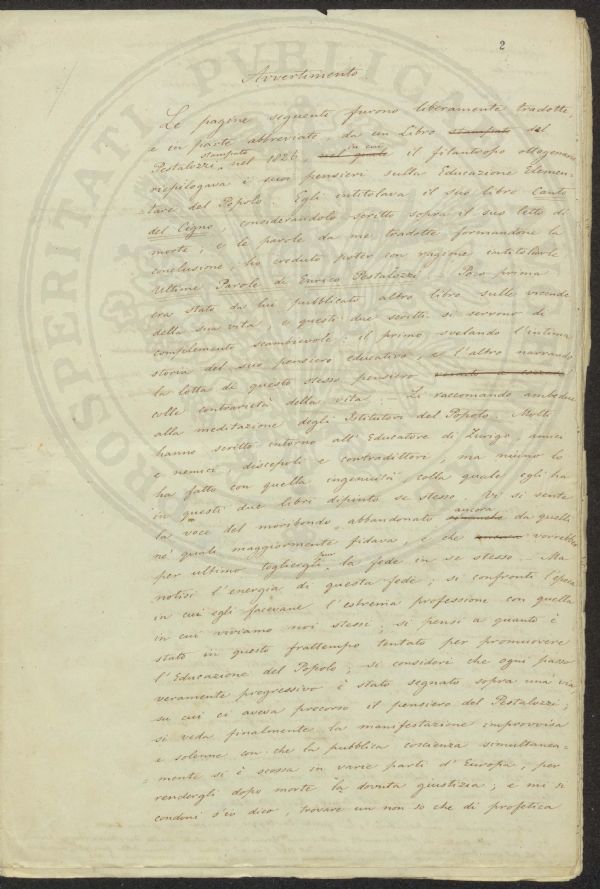 2
Avvertimento.
Le pagine seguenti furono liberamente tradotte,
e in parte abbreviate, da un Libro stampato del
Pestalozzi, stampato nel 1826, nel quale in cui il filantropo ottogenario
riepilogava i suoi pensieri sulla Educazione Elemen-
tare del Popolo. Egli intitolava il suo libro Canto
del Cigno, considerandolo scritto sopra il suo letto di
morte; e le parole da me tradotte formandone la
conclusione, ho creduto poter con ragione intitolarle
Ultime Parole di Enrico Pestalozzi. Poco prima
era stato da lui pubblicato altro libro sulle vicende
della sua vita, e questi due scritti si servono di
complemento scambievole: il primo svelando l'intima
storia del suo pensiero educativo, e l'altro narrando
la lotta di questo stesso pensiero
colle contrarietà della vita. Li raccomando ambedue
alla meditazione degli Istitutori del Popolo. Molti
hanno scritto intorno all'Educatore di Zurigo, amici
e nemici, discepoli e contradittori, ma niuno lo
ha fatto con quella ingenuità colla quale egli ha
in questi due libri dipinto se stesso. Vi si sente
la voce del moribondo, abbandonato ancora da quelli
ne' quali maggiormente fidava, e che vorrebbe
per ultimo togliergli la fede in se stesso. – Ma
notisi l'energia di questa fede; si confronti l'epoca
in cui egli facevane l'estrema professione con quella
in cui viviamo noi stessi; si pensi a quanto è
stato in questo frattempo tentato per promuovere
l'Educazione del Popolo; si consideri che ogni passo
veramente progressivo è stato segnato sopra una via
su cui ci aveva precorso il pensiero del Pestalozzi;
si veda finalmente la manifestazione improvvisa
e solenne con che la pubblica coscienza simultanea-
-mente si è scossa in varie parti d'Europa, per
rendergli dopo morte la dovuta giustizia; e mi si
condoni s'io dico, trovare un non so che di profetica
PROSPERITATI PVBLICAE